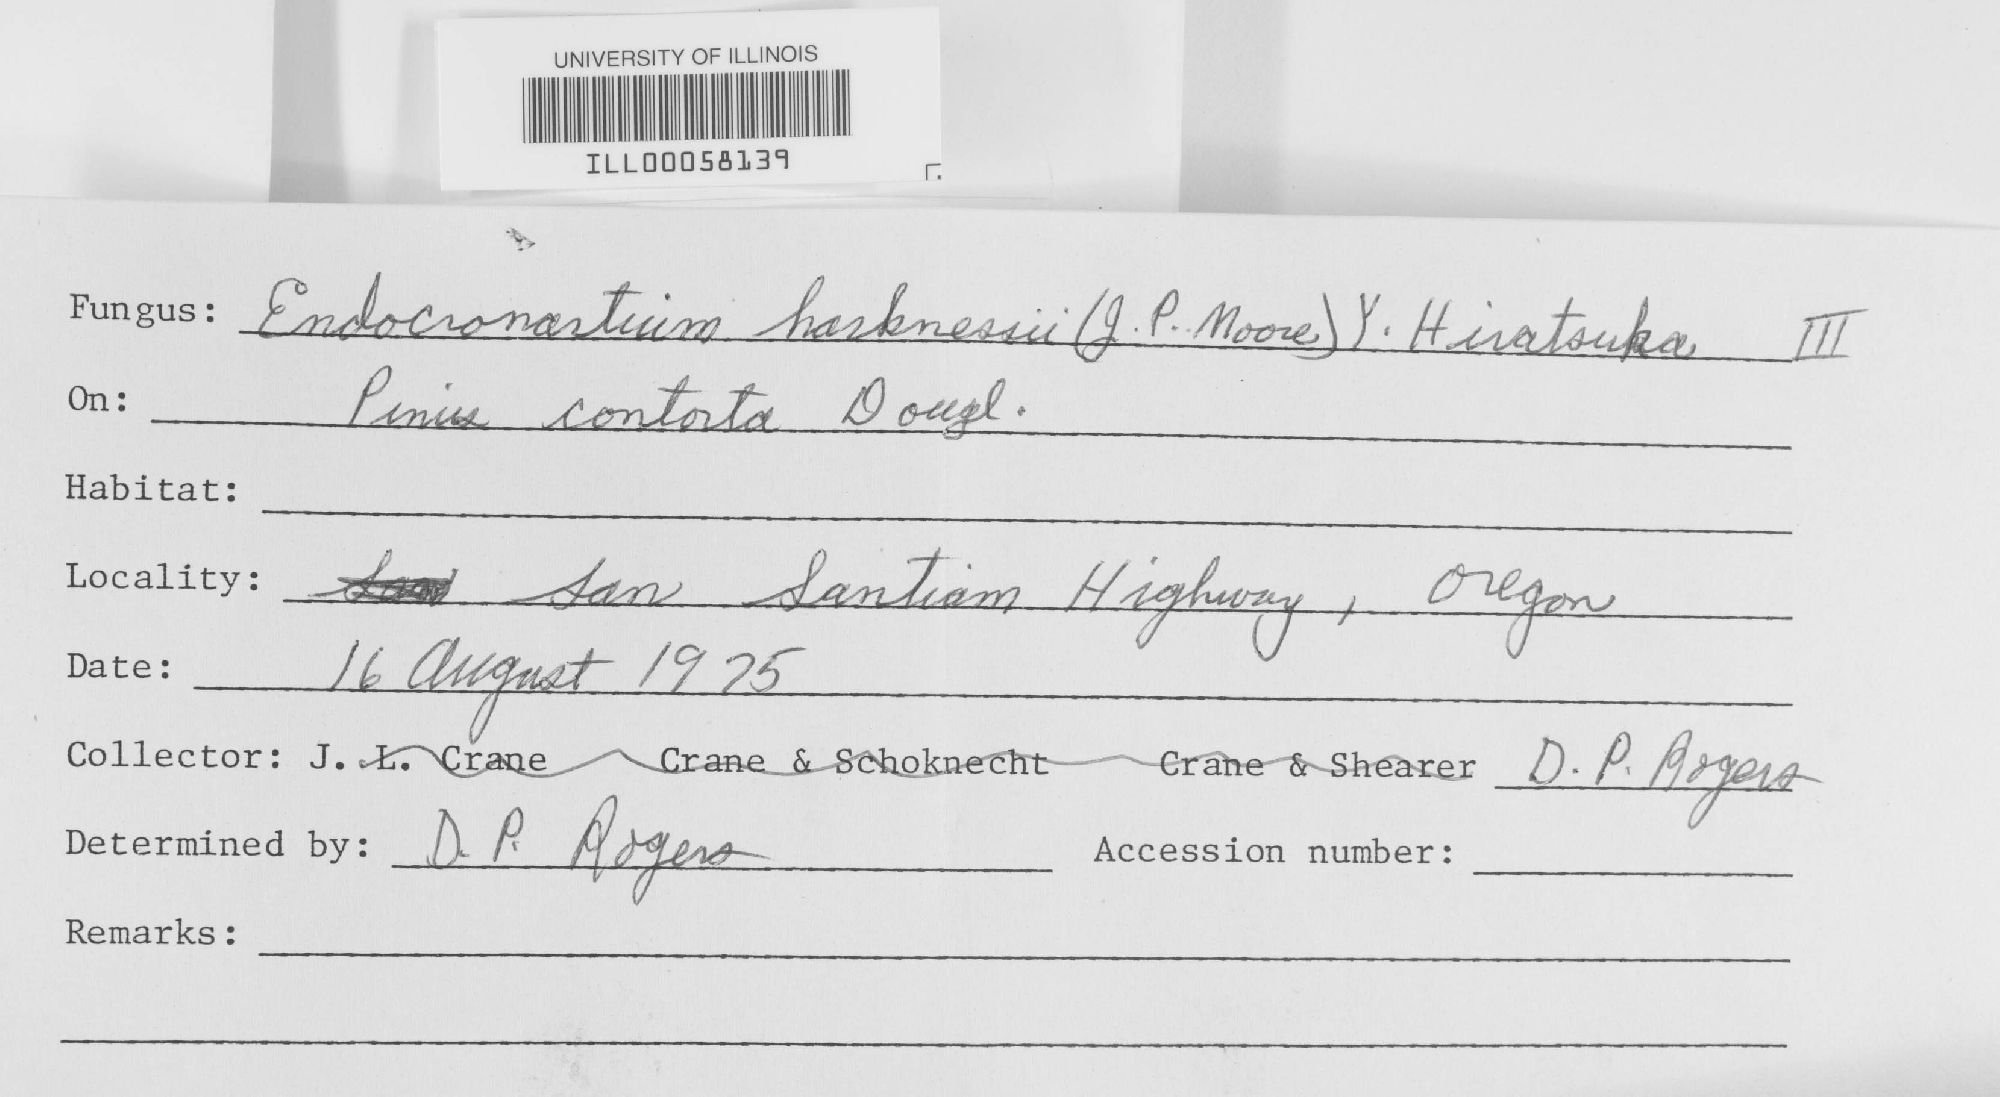 UNIVERSITY OF ILLINOIS
ILL00058139
Fungus: Endocronartium harknessii (J. P. Moore) Y. Hiratsuka III
On: Pinus contorta Dougl.
Habitat:
Locality: San Santiam Highway, Oregon
Date: 16 August 1975
Collector: J. L. Crane Crane & Schoknecht Crane & Shearer D. P. Rogers
Determined by: D. P. Rogers Accession number:
Remarks: